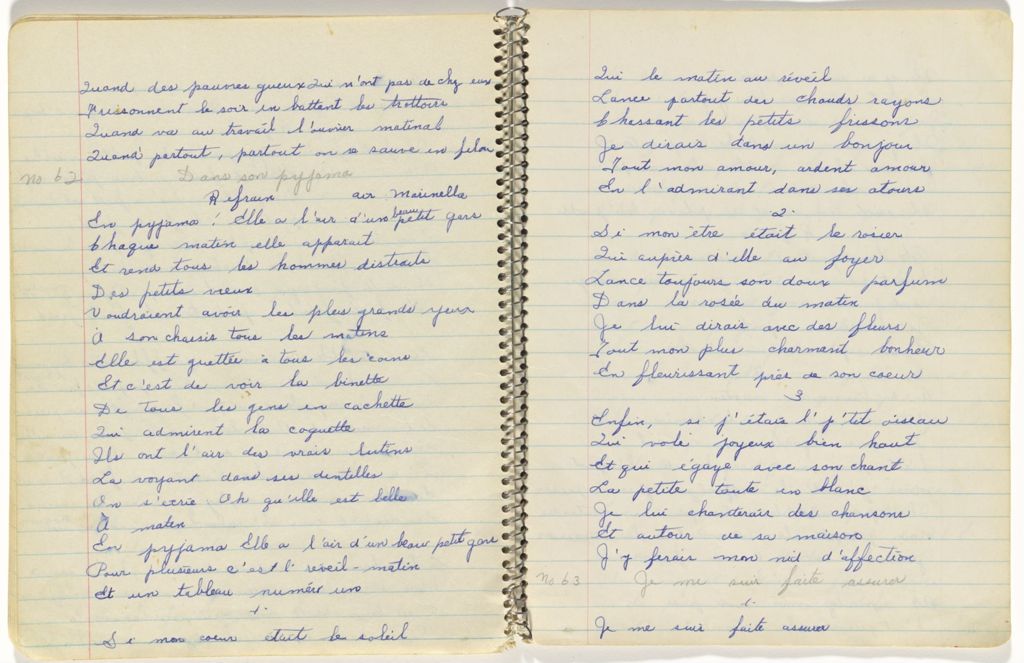 Quand des pauvres gueux Qui n'ont pas de chez eux
Frissonnent le soir en battent les trottoirs
Quand va au travail l'ouvrier matinal
Quand partout, partout on se sauve en filou
No 62 Dans son pyjama
Refrain air Marinella
En pyjama! Elle a l'air d'un beau petit gars
Chaque matin elle apparait
Et rend tous les hommes distraits
Des petits vieux
Voudraient avoir les plus grands yeux
À son chassis tous les matins
Elle est guettée à tous les coins
Et c'est de voir la binette
De tous les gens en cachette
Qui admirent la coquette
Ils ont l'air des vrais lutins
La voyant dans ses dentelles
On s'écrie Oh qu'elle est belle
À matin
En pyjama Elle a l'air d'un beau petit gars
Pour plusieurs c'est l'réveil-matin
Et un tableau numéro un
1.
Si mon coeur était le soleil
Qui le matin au réveil
Lance partout des chauds rayons
Chassant les petits frissons
Je dirais dans un bonjour
Tout mon amour, ardent amour
En l'admirant dans ses atours
2.
Si mon être était le rosier
Qui auprès d'elle au foyer
Lance toujours son doux parfum
Dans la rosée du matin
Je lui dirais avec des fleurs
Tout mon plus charmant bonheur
En fleurissant près de son coeur
3
Enfin, si j'étais l'p'tit oiseau
Qui vole joyeux bien haut
Et qui égaye avec son chant
La petite toute en blanc
Je lui chanterais des chansons
Et autour de sa maison
J'y ferais mon nid d'affection
No 63 Je me suis faite assurer
1.
Je me suis faite assurer